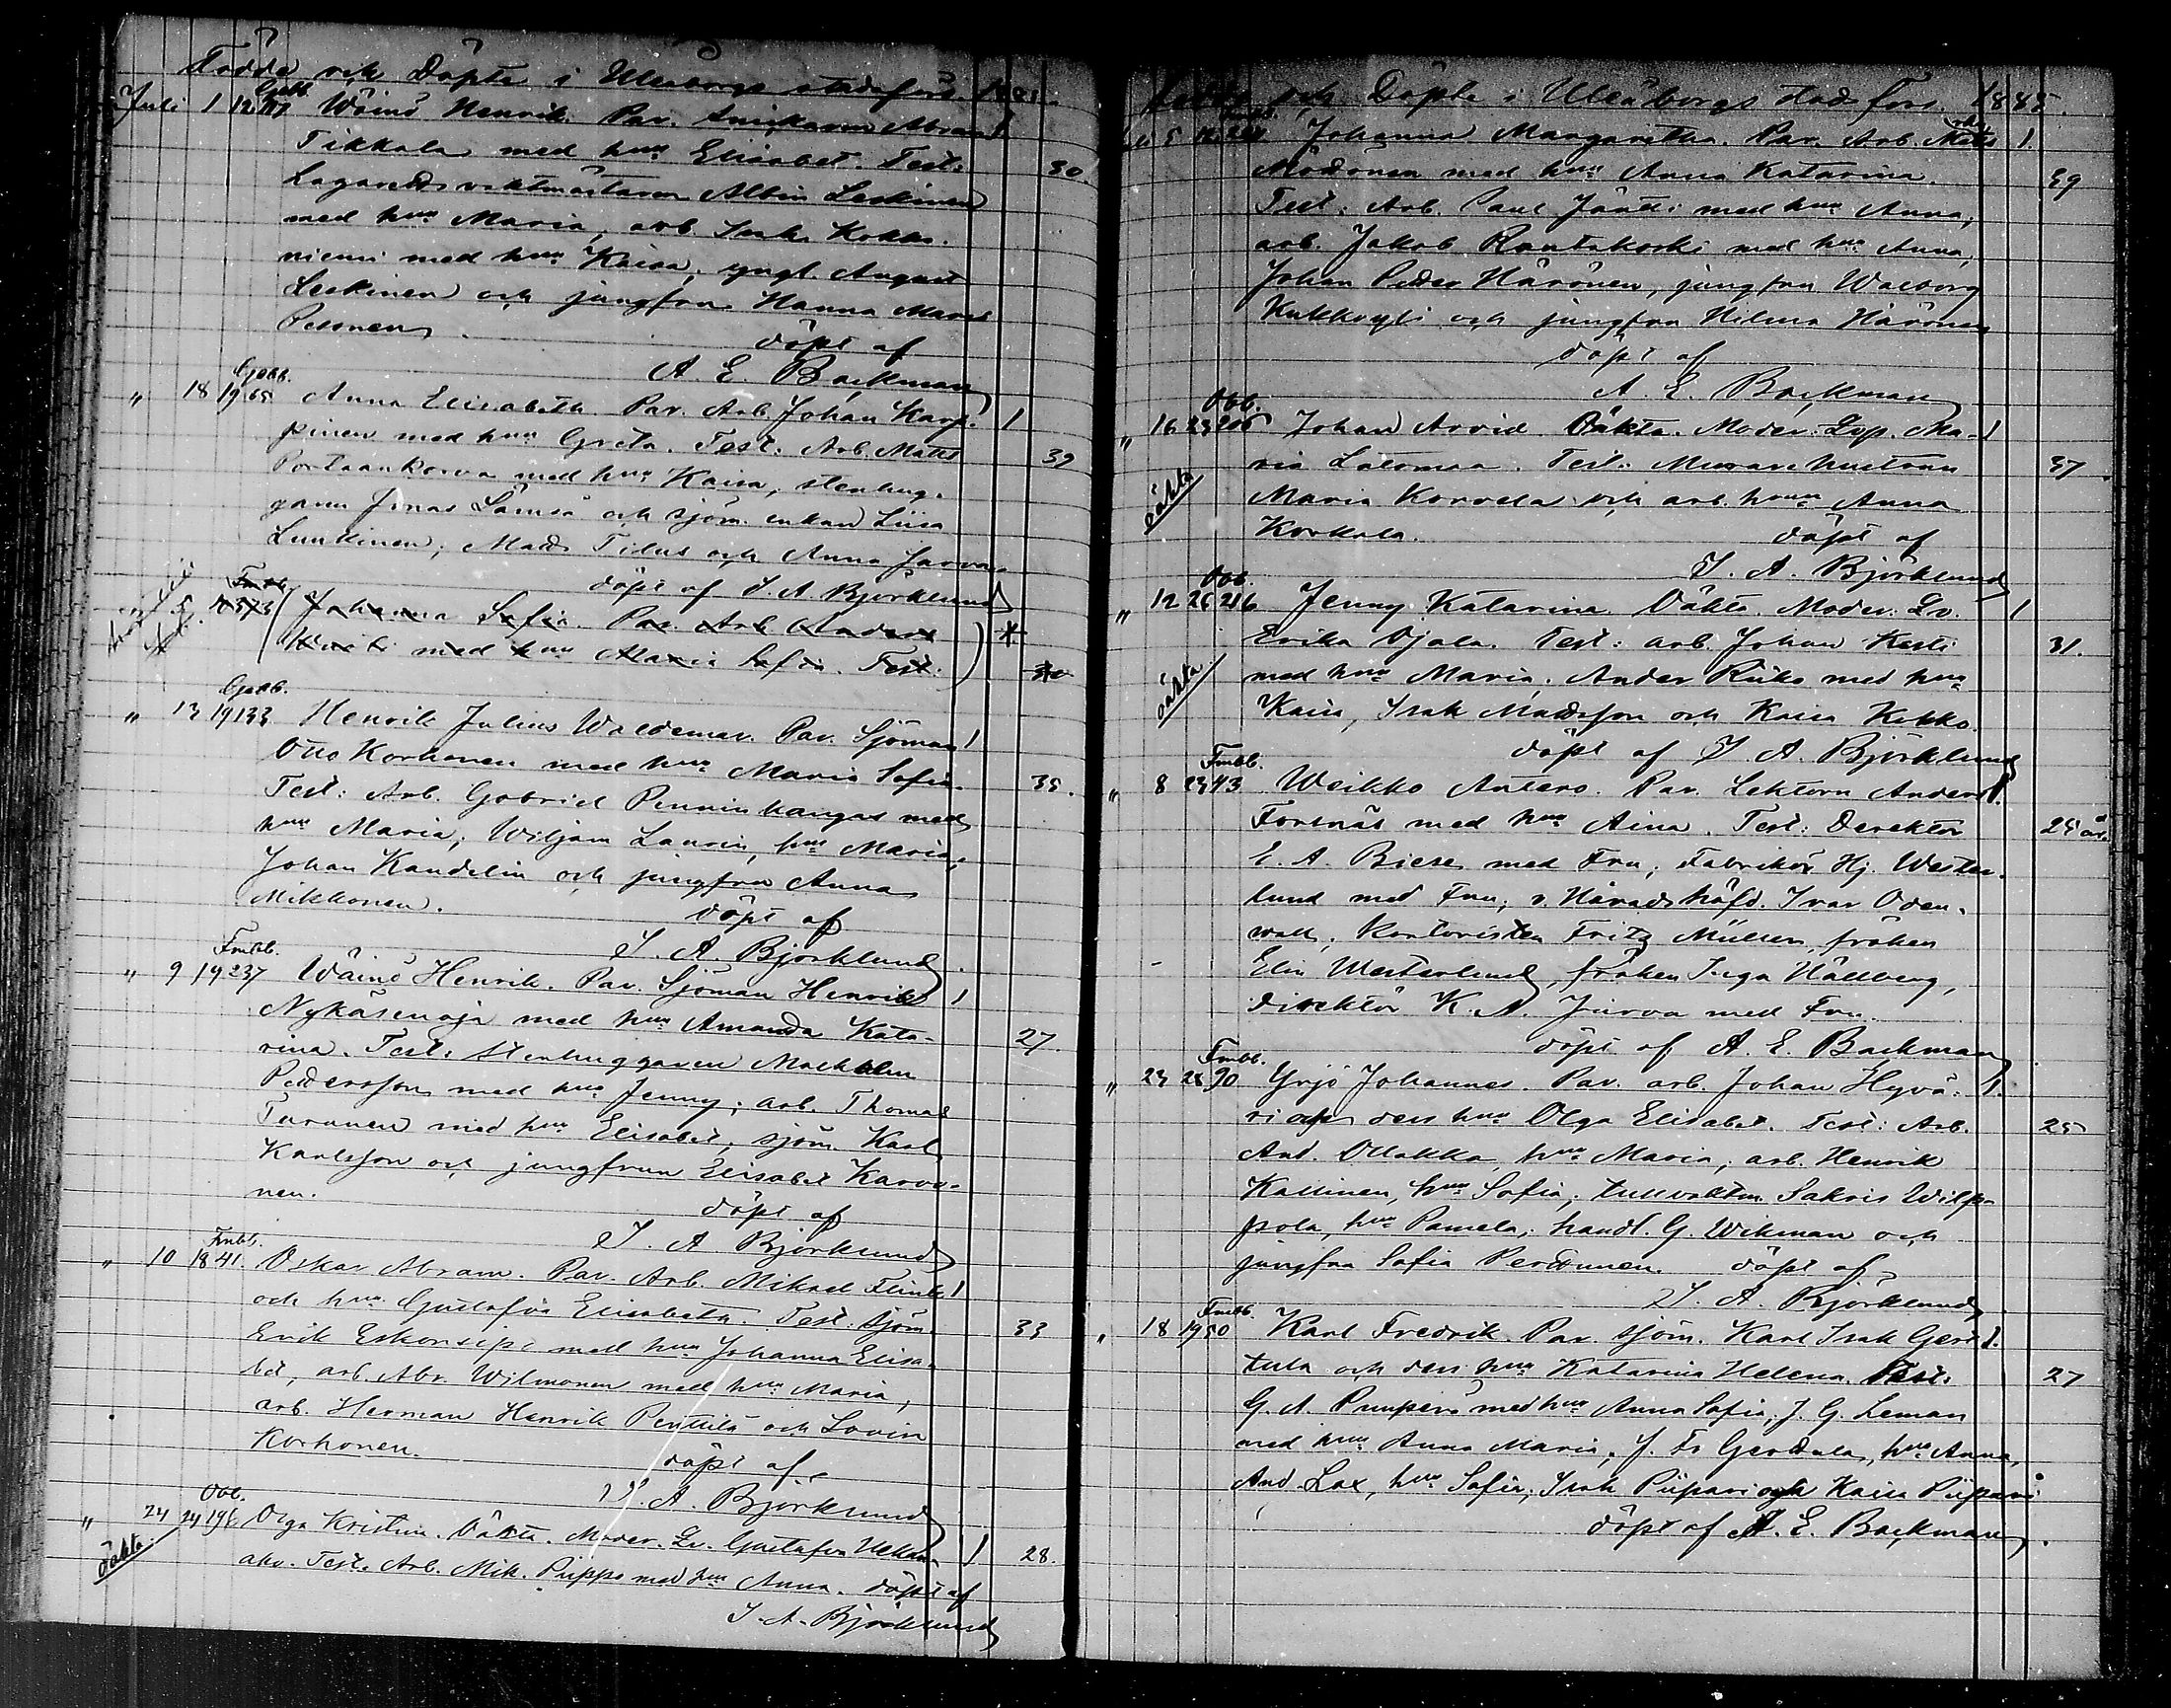 Födde och Döpte i Uleåborgs stadsförs. 1885.
Gobb.
Juli 1 12 Wäinö Henrik. Par. Abram 1
Tikkala med hnu Elisabet. Test: 30
Lagaredsvaktmästaren Albin Leskinen
med hnu Maria, arb. Isak Kokko-
niemi med hnu Kaisa, yngl. August
Leskinen och jungfru Hanna Maria
Pesonen.
döpt af
A. E. Backman
Gobb.
" 18 19 65 Anna Elisabeth. Par. Arb. Johan Karp- 1
pinen med hnu Greta. Test: Arb. Matts 39
Portaankorva med hnu Kaisa, stenhug-
garen Jonas Lämsä och sjöm. enkan Liisa
Lunkinen, Matts Titus och Anna
döpt af I. A. Björklund
Fmbb.
5 10 Johanna Sofia. Par. Arb. Anders
med hnu Maria Sofia. Test:
Gobb.
" 13 19 133 Henrik Julius Waldemar. Par. Sjöman 1
Otto Korhonen med hnu Maria Sofia. 35.
Test: Arb. Gabriel Penninkangas med
hnu Maria; Wiljam Laurin, hnu Maria;
Johan Kandelin och jungfru Anna
Mikkonen.
döpt af
I. A. Björklund
Fmbb.
" 9 19 237 Wäinö Henrik. Par. Sjöman Henrik 1
Nykäsenoja med hnu Amanda Kata- 27.
rina. Test: stenhuggaren
Pettersson med hnu Jenny; arb. Thomas
Turunen med hnu Elisabet, sjöm. Karl
Karlsson och jungfrun Elisabet Karvo-
nen.
döpt af
I. A. Björklund
Fmbb.
" 10 18 41. Oskar Abram. Par. Arb. Mikael Flink 1
och hnu Gustafva Elisabeta. Test. sjöm. 33
Erik Eskonsipo med hnu Johanna Elisa-
bet, arb. Abr. Wilmonen med hnu Maria,
arb. Herman Henrik Penttilä och Lovisa
Korhonen.
döpt af
I. A. Björklund
Obb.
" 24 24 196 Olga Kristina. Oäkta. Moder: Lö. Gustafva 1 28.
oäkta
Test. Arb. Mik. Piippo med hnu Anna. döpt af
I. A. Björklund
Födde och Döpte i Uleåborgs stads förs. 1885.
Fmbb.
Juli 5 12 Johanna Margaretha. Par. Arb. Matts 1.
med hnu Anna Katarina. 39
Test: Arb. Paul Jäntti med hnu Anna,
arb. Jakob Rantakoski med hnu Anna,
Johan Petter Härönen, jungfru Walborg
Kukkoyli och jungfru Hilma Härönen
döpt af
A. E. Backman
Obb.
" 16 23 205 Johan Arvid. Oäkta. Moder: Lösp. Ma- 1
oäkta
ria Latomaa. Test: Murarehustrun 37.
Maria Korvela och arb. hnu Anna
Korkala.
döpt af
I. A. Björklund
Obb.
" 12 26 216 Jenny Katarina. Oäkta. Moder: Lö. 1
oäkta
Erika Ojala. Test: arb. Johan Kesti 31.
med hnu Maria, Ander Riiko med hnu
Kaisa, Isak Mattsson och Kaisa Kokko.
döpt af I. A. Björklund
Fmbb.
" 8 23 43 Weikko Antero. Par. Lektorn Anders 1.
Forsnäs med hnu Aina. Test: Direktör 25 år.
E. A. Biese med Fru; Fabrikör Hj. Wester-
lund med Fru; v. Häradshöfd. Ivar Oden-
wall, Kontoristen Fritz Müller, fröken
Elin Westerlund, fröken Inga Hällberg,
direktör K. A. Jurva med Fru.
döpt af A. E. Backman
Fmbb.
" 23 28 90 Yrjö Johannes. Par. arb. Johan Hyvä- 1.
ri och dess hnu Olga Elisabet. Test: Arb. 25
And. Ollakka, hnu Maria; arb. Henrik
Kallinen, hnu Sofia; tullvaktm. Sakris Wilp-
pola, hnu Pamela; handl. G. Wikman och
jungfru Sofia Perttunen. döpt af
I. A. Björklund
Fmbb.
" 18 19 50 Karl Fredrik. Par. sjöm. Karl Isak Gert- 1.
tula och dess hnu Katarina Helena. Test: 27
G. A. Puuperä med hnu Anna Sofia, J. G. Leman
med hnu Anna Maria, J. Fr. Gerttula, hnu Anna,
And. Lax, hnu Sofia; Isak Piipari och Kaisa Piipari
döpt af A. E. Backman.